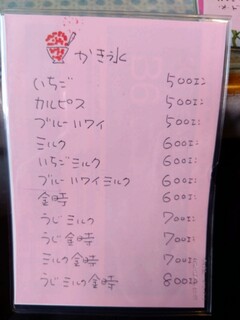 かき氷
いちご 500円
カルピス 500円
ブルーハワイ 500円
ミルク 600円
いちごミルク 600円
ブルーハワイミルク 600円
金時 600円
うじミルク 700円
うじ金時 700円
ミルク金時 700円
うじミルク金時 800円